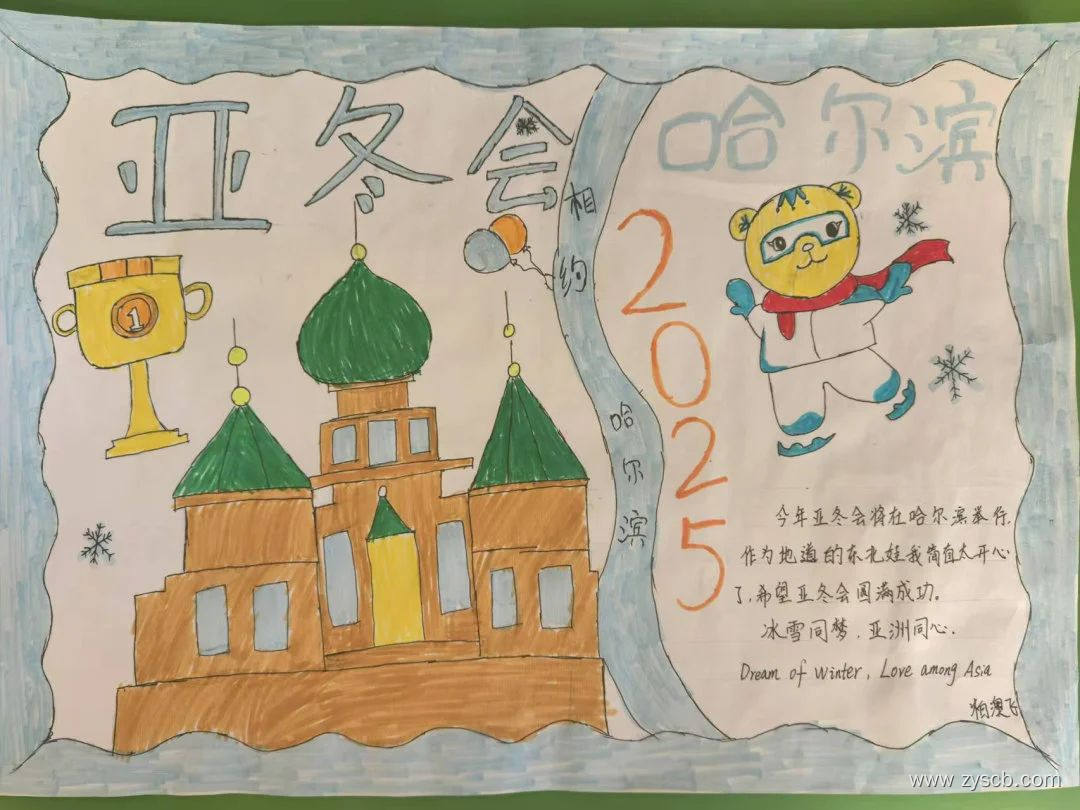 亚冬会
哈尔滨
1
相约
哈尔滨
2025
今年亚冬会将在哈尔滨举行,
作为地道的东北娃我简直太开心
了,希望亚冬会圆满成功。
冰雪同梦,亚洲同心.
Dream of winter, Love among Asia
www.zyscb.com